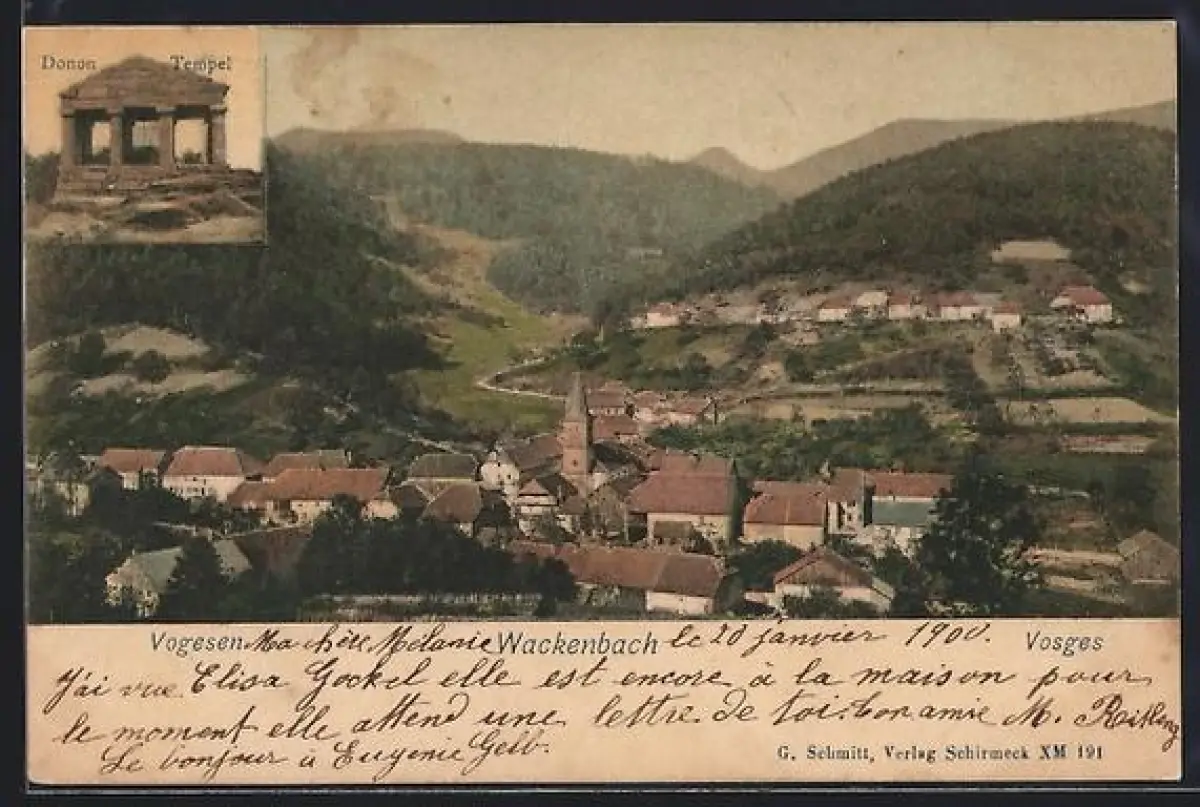 Donon Tempel
Vogesen Ma chère Mélanie Wackenbach le 20 janvier 1900. Vosges
J'ai vue Elisa Gockel elle est encore à la maison pour
le moment elle attend une lettre de toi. bon amie M.
Le bonjour à Eugenie Gelb.
G. Schmitt, Verlag Schirmeck XM 191